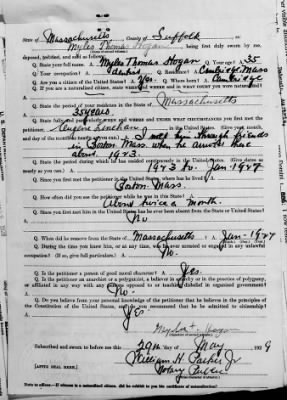 State of Massachusetts County of Suffolk ss:
Myles Thomas Hogan being first duly sworn by me,
deposed, publicly, and said as follows:
Q. State your full name? A. Myles Thomas Hogan Q. Age? A. 35
Q. Your occupation? A. Q. Residence? A. Cambridge, Mass
Q. Are you a citizen of the United States? A. Yes. Q. Where born? A. Cambridge
Q. If you are a naturalized citizen, state when and where and in what court you were naturalized?
Q. State the period of your residence in the State of Massachusetts
35 years.
Q. State fully and particularly when and where and under what circumstances you first met the
petitioner, Eugene Linehan in the United States. Give year, month,
and day of the month as nearly as you can. I met him through friends
in Boston Mass. when he arrived there
about 1923.
Q. State the period during which he has resided continuously in the United States? (Give dates)
1923 to Jan-1927
Q. Since you first met the petitioner in the United States where has he lived?
Boston Mass.
Q. How often did you see the petitioner while he was in this State?
About twice a month.
Q. Since you first met him in the United States has he ever been absent from the State or United States?
No
Q. When did he remove from the State of Massachusetts A. Jan-1927
Q. During the time you knew him, or at any time, was he ever arrested or engaged in any unlawful
occupation? (If so, give full particulars.) A. No.
Q. Is the petitioner a person of good moral character? A. Yes.
Q. Is the petitioner an anarchist or a polygamist, a believer in anarchy or in the practice of polygamy,
or affiliated in any way with any persons opposed to or teaching disbelief in organized government?
A. No.
Q. Do you believe from your personal knowledge of the petitioner that he believes in the principles of
the Constitution of the United States, and do you recommend that he be admitted to citizenship?
A. Yes.
Myles T. Hogan
Subscribed and sworn to before me this 29th day of May 1929
William H. Parker Jr
Notary Public
[AFFIX SEAL HERE.]
NOTE.—If witness is a naturalized citizen, did he exhibit to you his certificate of naturalization?